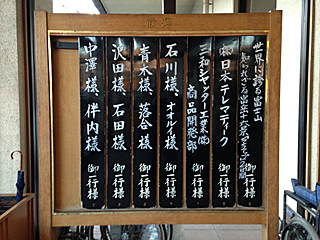 歓迎
世界に誇る富士山
御一行様
㈱日本テレマティーク 御一行様
三和シャッター工業㈱
商品開発部 御一行様
石川様 オオルイ様 御一行様
青木様 落合様 御一行様
沢田様 石田様 御一行様
中澤様 伴内様 御一行様